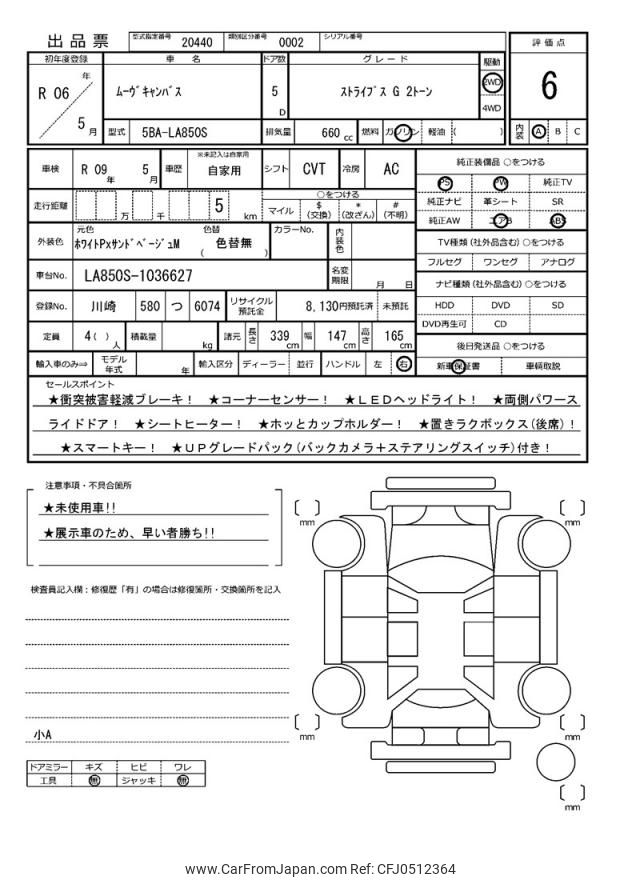 出品票 型式指定番号 20440 類別区分番号 0002 シリアル番号
評価点
6
内装 A B C
初年度登録 車名 ドア数 グレード 駆動
R 06 年 5 月
ムーヴキャンバス 5 D ストライプス G 2トーン 2WD 4WD
型式 5BA-LA850S 排気量 660 cc 燃料 ガソリン 軽油 ( )
車検 R 09 年 5 月 車歴 ※未記入は自家用 自家用 シフト CVT 冷房 AC
走行距離 万 千 5 km
○をつける
マイル $ (交換) * (改ざん) # (不明)
外装色 元色 ホワイトPxサンドベージュM 色替 ( 色替無 ) カラーNo. 内装色
車台No. LA850S-1036627 名変期限 月 日
登録No. 川崎 580 つ 6074 リサイクル預託金 8,130円預託済 未預託
定員 4( ) 人 積載量 kg 諸元 長さ 339 cm 幅 147 cm 高さ 165 cm
輸入車のみ⇒ モデル年式 年 輸入区分 ディーラー 並行 ハンドル 左 右
純正装備品 ○をつける
PS PW 純正TV
純正ナビ 革シート SR
純正AW エアB ABS
TV種類(社外品含む) ○をつける
フルセグ ワンセグ アナログ
ナビ種類(社外品含む) ○をつける
HDD DVD SD
DVD再生可 CD
後日発送品 ○をつける
新車保証書 車輌取説
セールスポイント
★衝突被害軽減ブレーキ! ★コーナーセンサー! ★LEDヘッドライト! ★両側パワース
ライドドア! ★シートヒーター! ★ホッとカップホルダー! ★置きラクボックス(後席)!
★スマートキー! ★UPグレードパック(バックカメラ+ステアリングスイッチ)付き!
注意事項・不具合箇所
★未使用車!!
★展示車のため、早い者勝ち!!
検査員記入欄:修復歴「有」の場合は修復箇所・交換箇所を記入
小A
ドアミラー キズ ヒビ ワレ
工具 無 ジャッキ 無
mm
mm
mm
mm
mm
www.CarFromJapan.com Ref: CFJ0512364